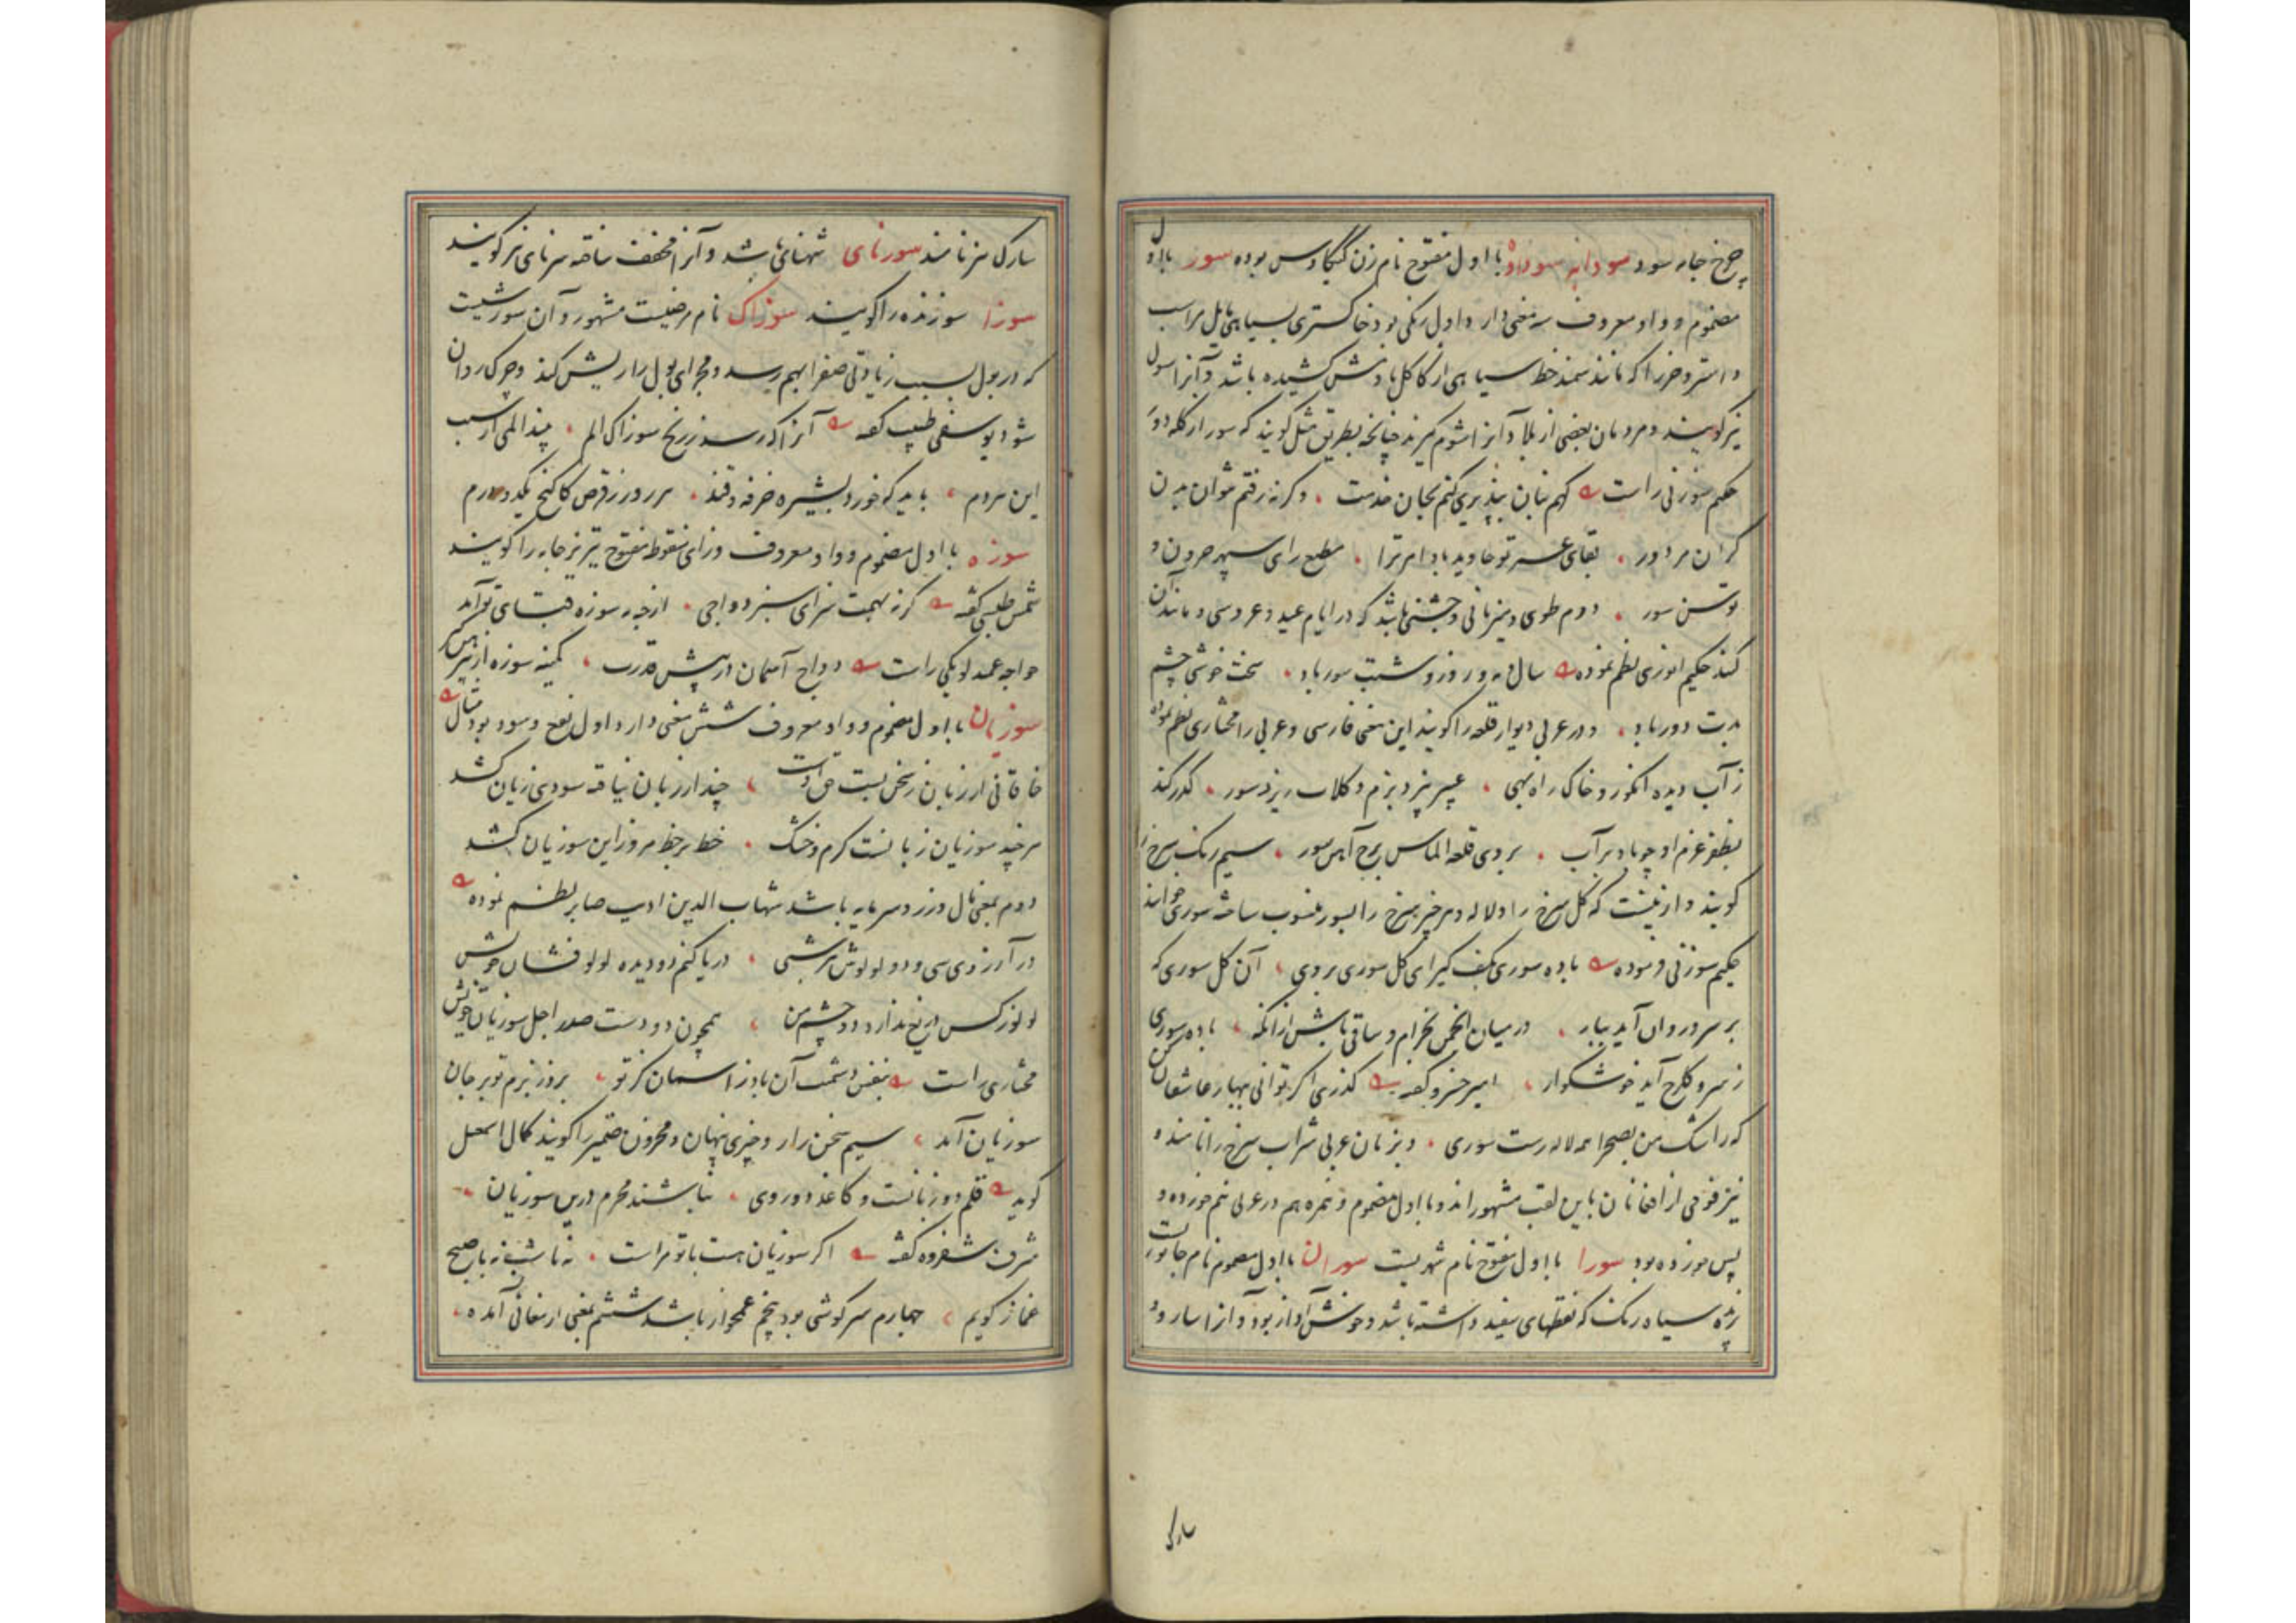 چرخ جامه سود سودابه سوداوه با اول مفتوح نام زن کیکاوس بوده سور با اول
مضموم و واو معروف سه معنی دارد اول رنگی بود خاکستری بسیاهی مایل مر اسب
و استر و خر را که مانند سمند خط سیاهی از کاکل تا دمش کشیده باشد و آنرا سول
نیز گویند و مردمان بعضی از بلاد آنرا شوم گیرند چنانچه بطریق مثل گویند که سور از گله دور
حکیم سوزنی راست کهم بنان بپذیری کنم بجان خدمت وگرنه رفتم نتوان بدن
گران مزدور بقای عمر تو جاوید باد امر ترا مطیع رای سپهر حرون و
توسن سور دوم طوی و میزبانی و جشنی باشد که در ایام عید و عروسی و مانند آن
کنند حکیم انوری نظم نموده سال و مه و روز و شبت سور باد سخت خوشی چشم
بدت دور باد و در عربی دیوار قلعه را گویند این معنی فارسی و عربی را مختاری نظم نموده
ز آب دیده انگور و خاک راه نهی عبیر بزم و گلاب ریزد سور گذر کند
بظفر عزم او چو باد بر آب بروی قلعه الماس برج آهن سور سیم رنگ سرخ را
گویند و ازینست که گل سرخ را و لاله و هر چیز سرخ را بسور منسوب ساخته سوری خوانند
حکیم سوزنی فرموده باده سوری بکف گیر ای گل سوری بروی آن گل سوری که
بر سرو روان آید ببار در میان انجمن بخرام و ساقی باش از آنکه باده سوری
ز سرو گلرخ آید خوشگوار امیر خسرو گفته گذری اگر توانی بهار عاشقان کن
که ز اشک من بصحرا همه لاله رست سوری و بزبان عربی شراب سرخ را نامند و
نیز قومی از افغانان باین لقب مشهور اند و با اول مضموم و همزه هم در عربی نیم خورده و
پس خورده بود سورا با اول مفتوح نام شهریست سوران با اول مضموم نام جانوریست
پرنده سیاه رنگ که نقطهای سفید داشته باشد و خوش آواز بود و آنرا سار و
سارک
سارک نیز نامند سورنای شهنای باشد و آنرا مخفف ساخته سرنای نیز گویند
سوزا سوزنده را گویند سوزاک نام مرضیست مشهور و آن سوزشیست
که در بول بسبب زیادتی صفرا بهم رسد و مجرای بول را ریش کند و چرک روان
شود یوسفی طبیب گفته آنرا که رسد ز رنج سوزاک الم بیند المی از سبب
این مردم باید که خورد بشیره خرفه و قند هر روز ز قرص کاکنج یکدو درم
سوزه با اول مضموم و واو معروف و زای منقوط مفتوح تیریز جامه را گویند
شمس طبسی گفته گر نه بهمت سزای سبز دواجی از چه سوزه قبای تو آمد
خواجه عمید لوبکی راست دواج آسمان در پیش قدرت کمینه سوزه از پیرهن
سوزیان با اول مضموم و واو معروف شش معنی دارد اول نفع و سود بود مثال
خاقانی از زیان سخن بست خواست چند از زبان نیافته سودی زیان کشد
هر چند سوزیان زبانست گرم و خشک خط بر خط مزور این سوزیان کشد
دوم بمعنی مال و زر و سرمایه باشد شهاب الدین ادیب صابر نظم نموده
در آرزوی سی و دو لولوش هر شبی دریا کنم دو دیده لولو فشان خویش
لولو ز کس دریغ ندارد دو چشم من همچون دو دست صدر اجل سوزیان خویش
مختاری راست بنفس دشمنت آن باد ز آسمان کز تو بروز بزم تو بر جان
سوزیان آمد سیم سخن راز و چیزی پنهان و مخزون ضمیر را گویند کمال اسمعیل
گوید قلم دو زبانست و کاغذ دو روی نباشند محرم درین سوزیان
شرف شفروه گفته اگر سوزیان هست با تو مراست نه با شب نه با صبح
غماز گویم چهارم سرگوشی بود پنجم غمخوار باشد ششم بمعنی ارمغانی آمده